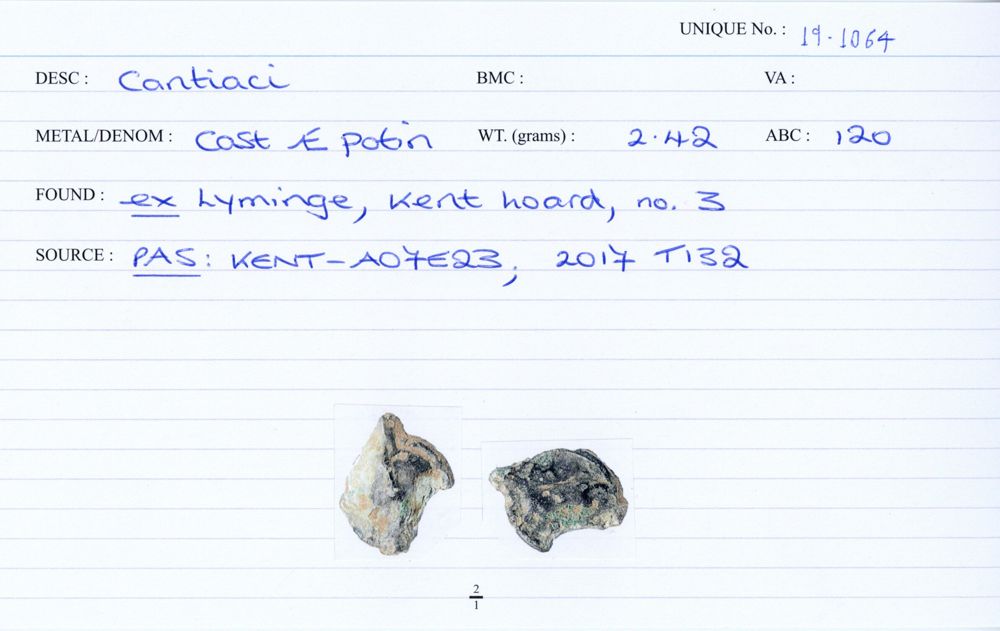 UNIQUE No. : 19.1064
DESC : Cantiaci BMC : VA :
METAL/DENOM : Cast Æ potin WT. (grams) : 2.42 ABC : 120
FOUND : ex Lyminge, Kent hoard, no. 3
SOURCE : PAS: KENT-A07E23, 2017 T132
2
1